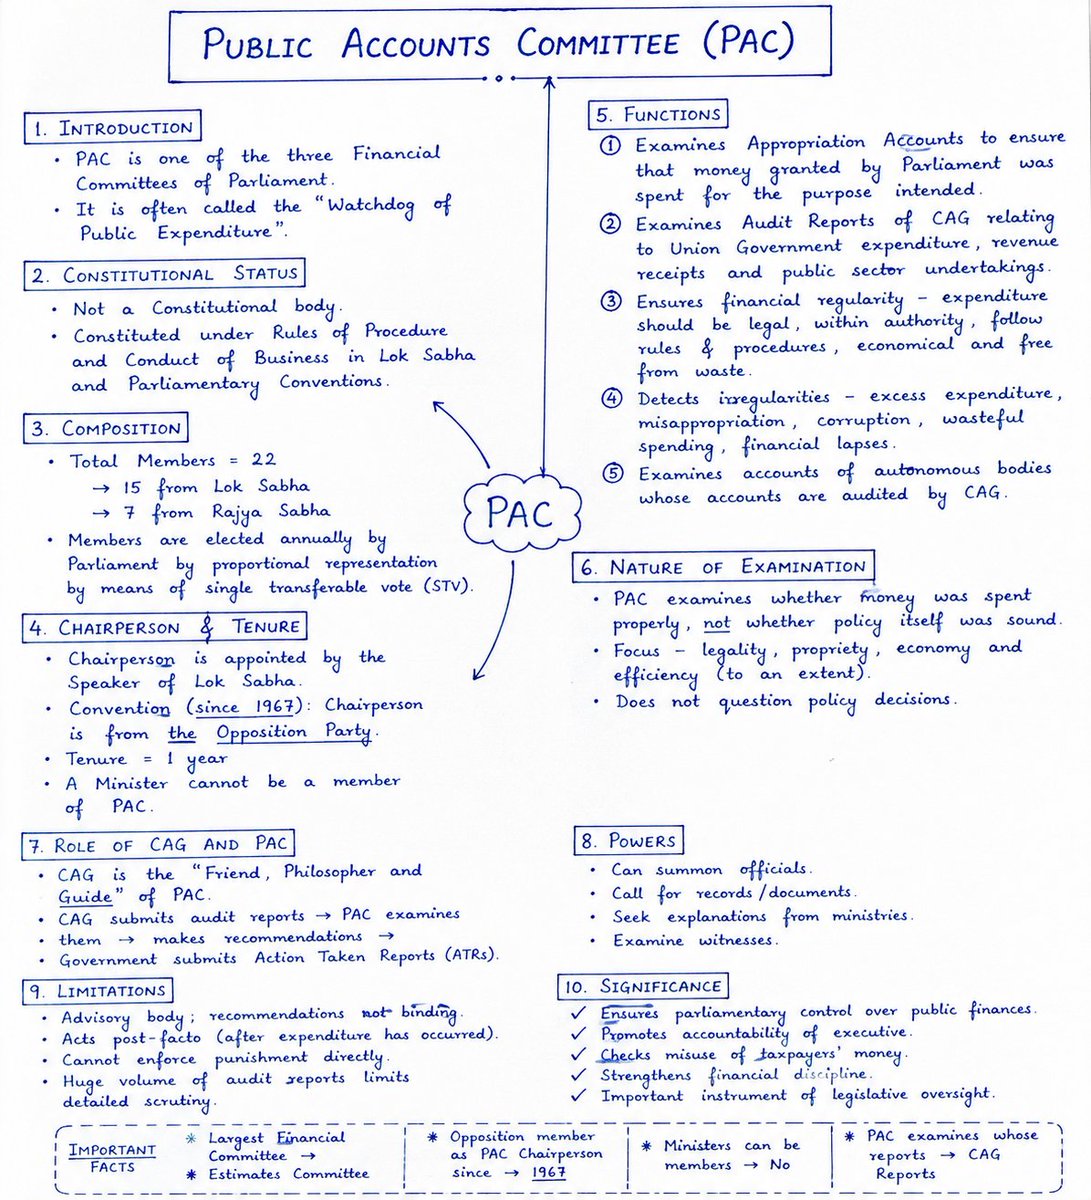 PUBLIC ACCOUNTS COMMITTEE (PAC)
1. INTRODUCTION
• PAC is one of the three Financial
Committees of Parliament.
• It is often called the "Watchdog of
Public Expenditure".
2. CONSTITUTIONAL STATUS
• Not a Constitutional body.
• Constituted under Rules of Procedure
and Conduct of Business in Lok Sabha
and Parliamentary Conventions.
3. COMPOSITION
• Total Members = 22
→ 15 from Lok Sabha
→ 7 from Rajya Sabha
• Members are elected annually by
Parliament by proportional representation
by means of single transferable vote (STV).
4. CHAIRPERSON & TENURE
• Chairperson is appointed by the
Speaker of Lok Sabha.
• Convention (since 1967): Chairperson
is from the Opposition Party.
• Tenure = 1 year
• A Minister cannot be a member
of PAC.
PAC
5. FUNCTIONS
① Examines Appropriation Accounts to ensure
that money granted by Parliament was
spent for the purpose intended.
② Examines Audit Reports of CAG relating
to Union Government expenditure, revenue
receipts and public sector undertakings.
③ Ensures financial regularity – expenditure
should be legal, within authority, follow
rules & procedures, economical and free
from waste.
④ Detects irregularities – excess expenditure,
misappropriation, corruption, wasteful
spending, financial lapses.
⑤ Examines accounts of autonomous bodies
whose accounts are audited by CAG.
6. NATURE OF EXAMINATION
• PAC examines whether money was spent
properly, not whether policy itself was sound.
• Focus – legality, propriety, economy and
efficiency (to an extent).
• Does not question policy decisions.
7. ROLE OF CAG AND PAC
• CAG is the "Friend, Philosopher and
Guide" of PAC.
• CAG submits audit reports → PAC examines
• them → makes recommendations →
• Government submits Action Taken Reports (ATRs).
8. POWERS
• Can summon officials.
• Call for records/documents.
• Seek explanations from ministries.
• Examine witnesses.
9. LIMITATIONS
• Advisory body; recommendations not binding.
• Acts post-facto (after expenditure has occurred).
• Cannot enforce punishment directly.
• Huge volume of audit reports limits
detailed scrutiny.
10. SIGNIFICANCE
✓ Ensures parliamentary control over public finances.
✓ Promotes accountability of executive.
✓ Checks misuse of taxpayers' money.
✓ Strengthens financial discipline.
✓ Important instrument of legislative oversight.
IMPORTANT
FACTS
* Largest Financial
Committee →
* Estimates Committee
* Opposition member
as PAC Chairperson
since → 1967
* Ministers can be
members → No
* PAC examines whose
reports → CAG
Reports